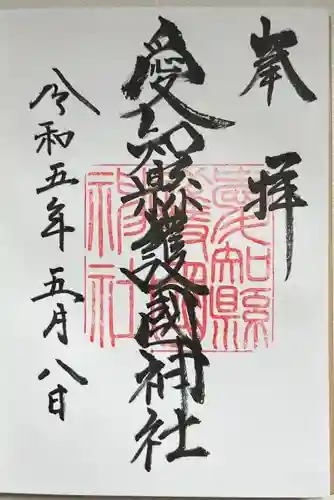 奉拝
愛知縣護國神社
愛知縣
護國
神社
令和五年五月八日